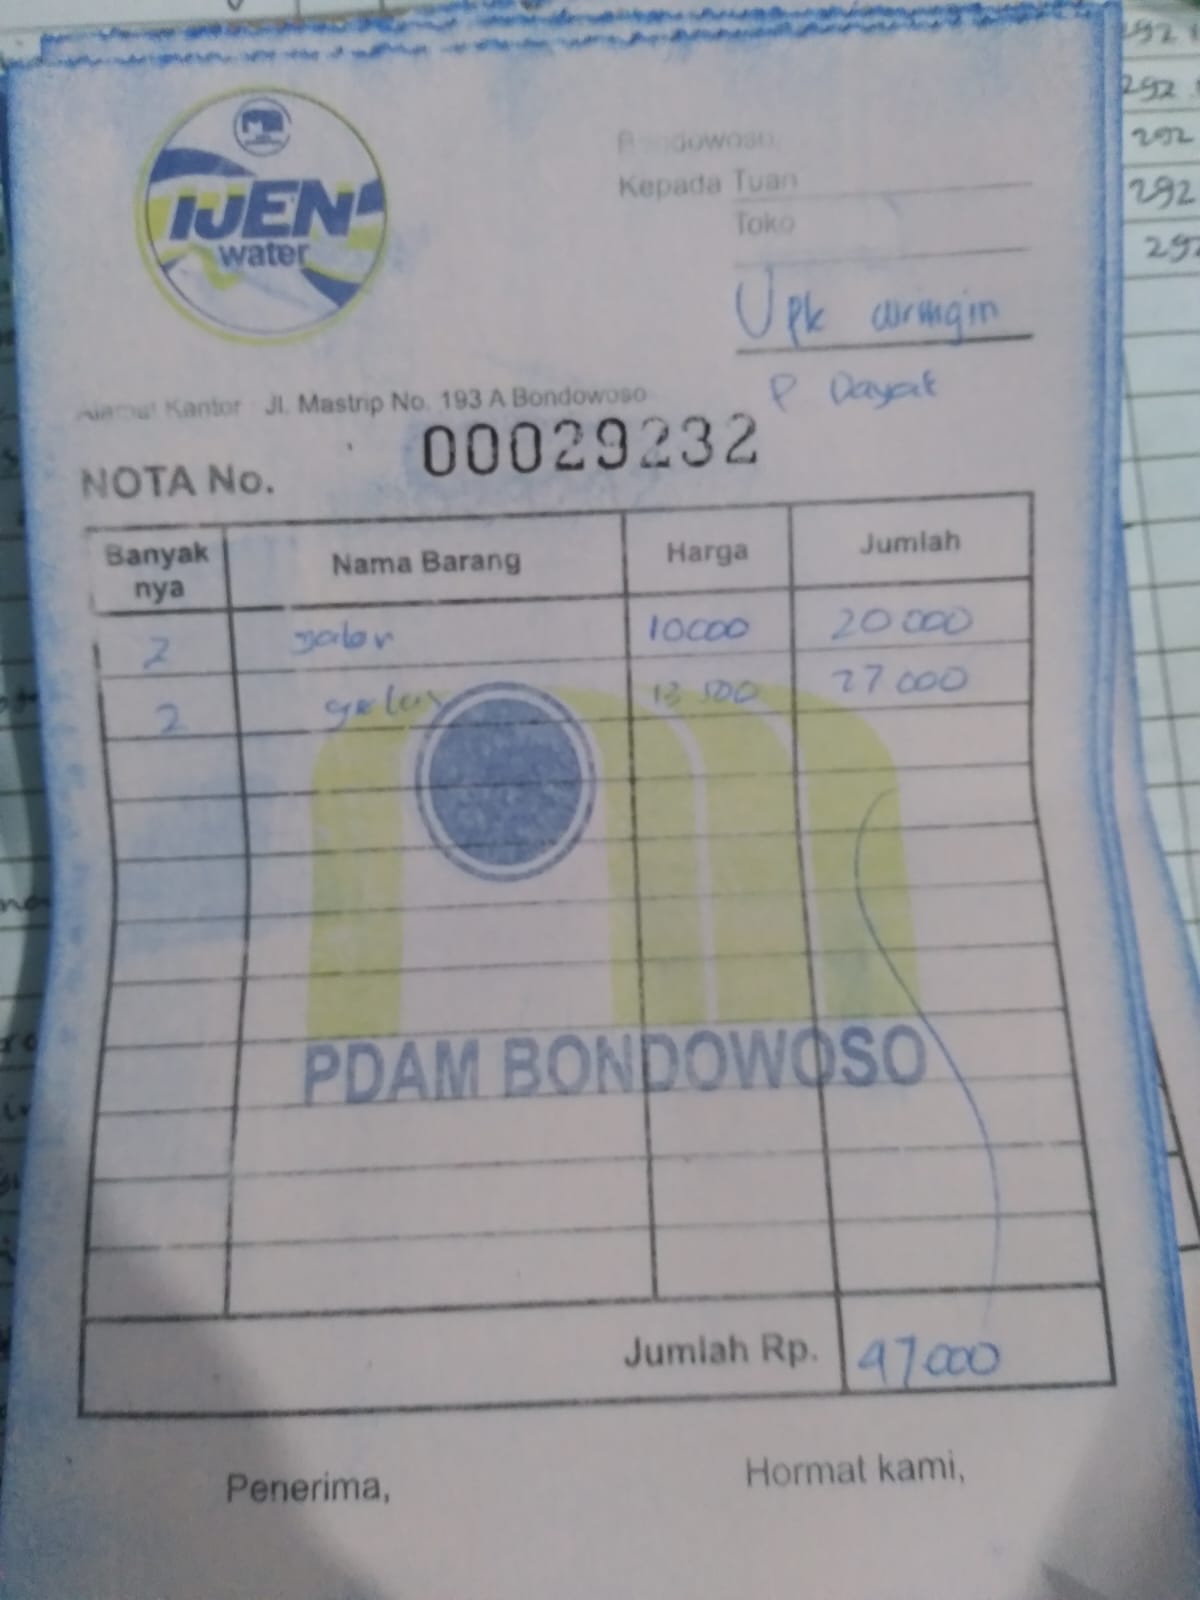 IJEN
water
Bondowoso,
Kepada Tuan
Toko
Upk wringin
P Dayat
Alamat Kantor Jl. Mastrip No. 193 A Bondowoso
NOTA No. 00029232
Banyak nya Nama Barang Harga Jumlah
2 galon 10000 20 000
2 gelas 13 500 27 000
PDAM BONDOWOSO
Jumlah Rp. 47 000
Penerima, Hormat kami,